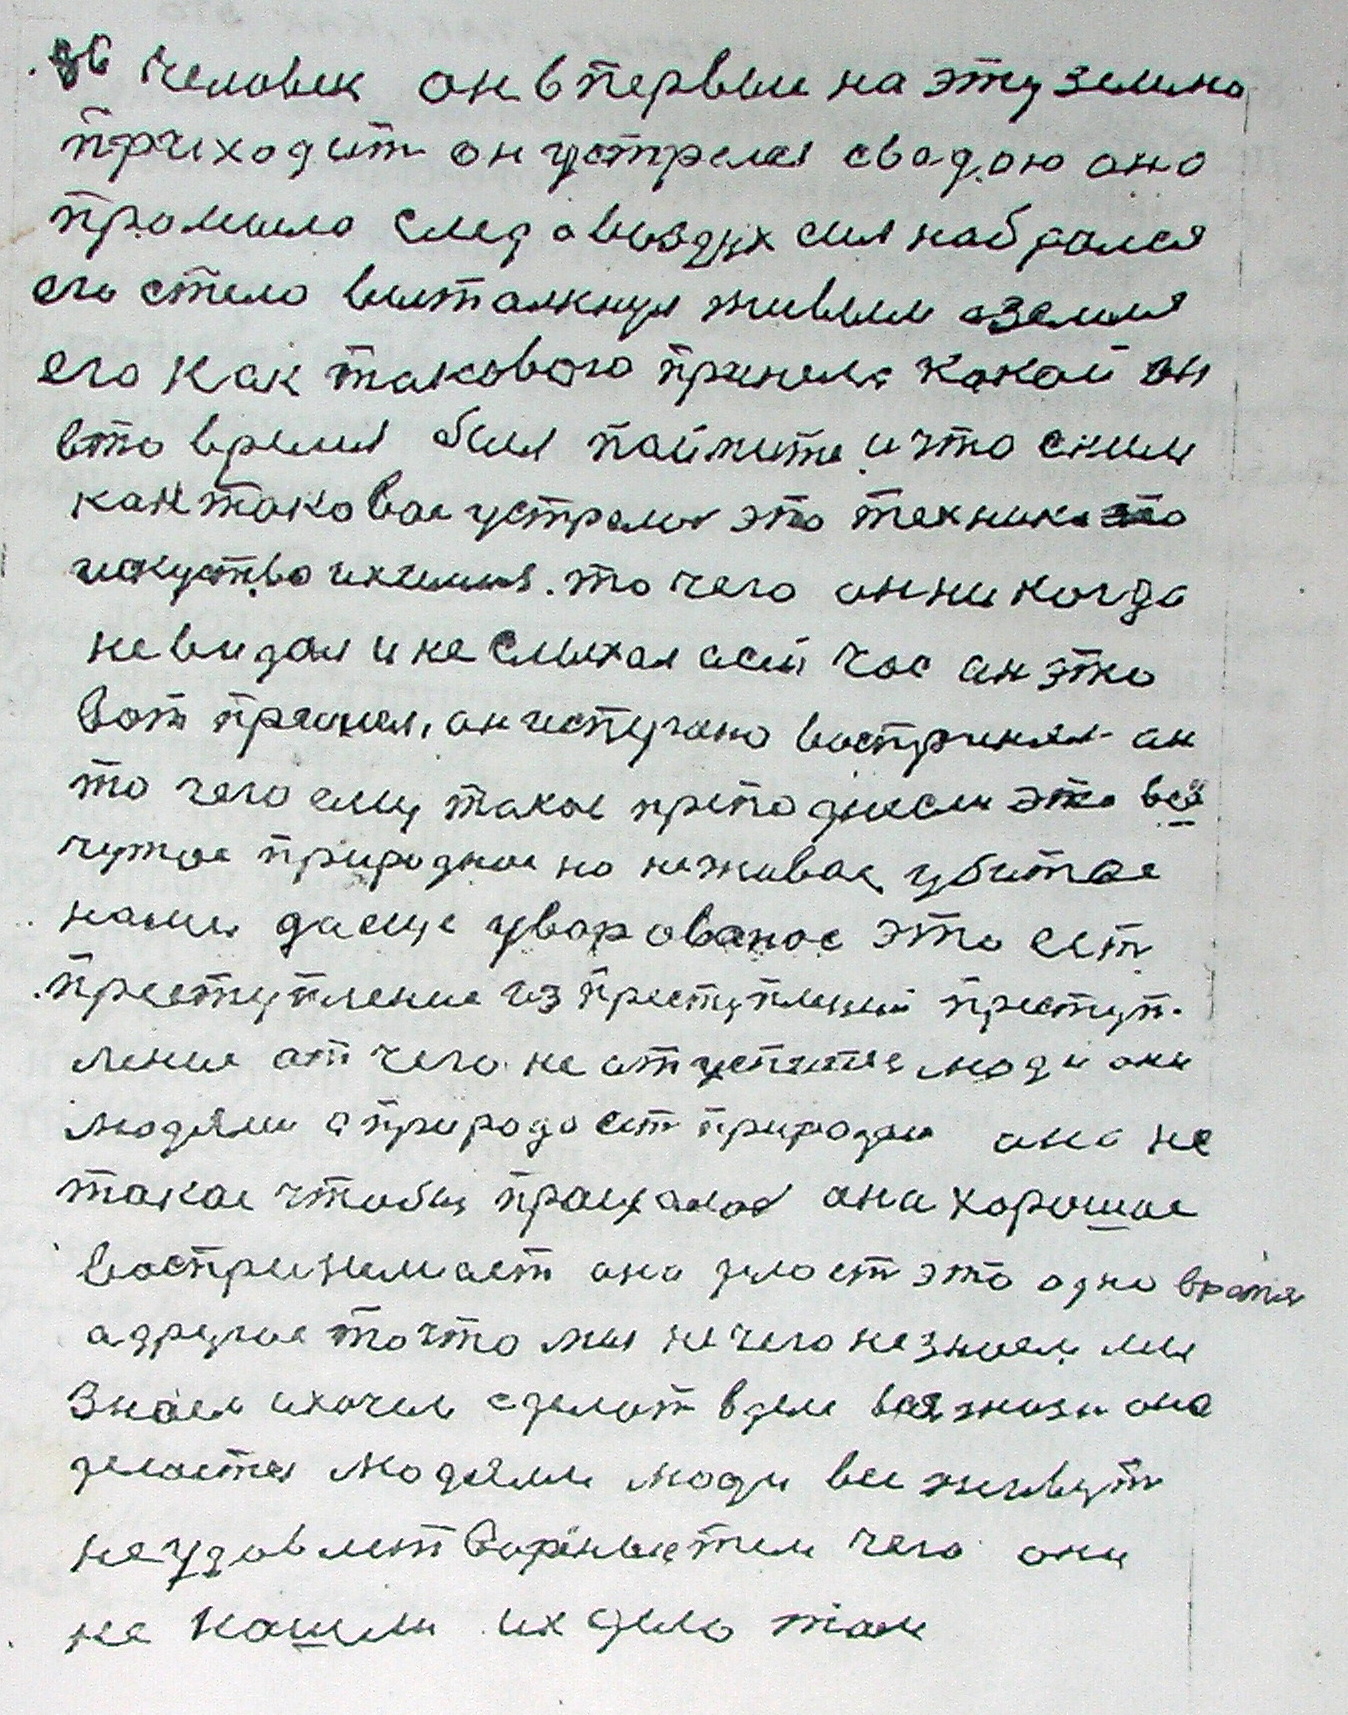 36 человек он впервыи на эту землю
приходит он устрелся свадою она
промыла след овоздух сил набрался
его стело выталкнул живым аземля
его как такового принела какой он
вто время был поймите и что сним
кактаковое устрелис это техника это
искуство ихимия. то чего онникогда
невидал и не слыхал асей час он это
вот принял, он испугано воспринял он
то чего ему такое преподнесли это всё
чужое природное но неживое, убитое
нами даеще уворованое это ест
преступление из преступлений преступ-
ление от чего не отуспится люди они
людями а природа ест природаи она не
такае чтобы прощалос она хорошое
воспринимает она делает это одно время
адругое точто мы нечего незнаем мы
знаем ихочем сделат вделе вся жизн она
делается людями люди все живут
неудовлетвореные тем чего они
не нашли их дело там